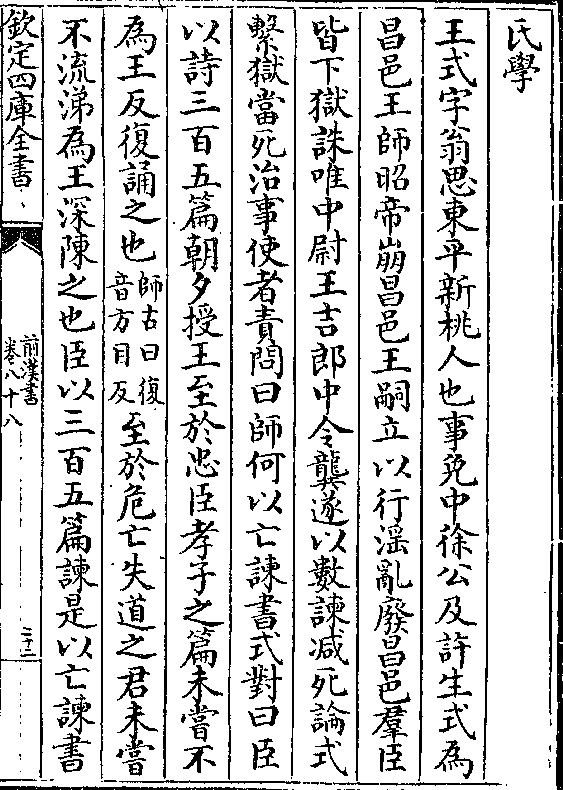 氏學
王式字翁思東平新桃人也事免中徐公及許生式為
昌邑王師昭帝崩昌邑王嗣立以行淫亂廢昌邑羣臣
皆下獄誅唯中尉王吉郎中令龔遂以數諫減死論式
繫獄當死治事使者責問曰師何以亡諫書式對曰臣
以詩三百五篇朝夕授王至於忠臣孝子之篇未嘗不
為王反復誦之也師古曰復音方目反至於危亡失道之君未嘗
不流涕為王深陳之也臣以三百五篇諫是以亡諫書
欽定四庫全書
前漢書
卷八十八
二十二